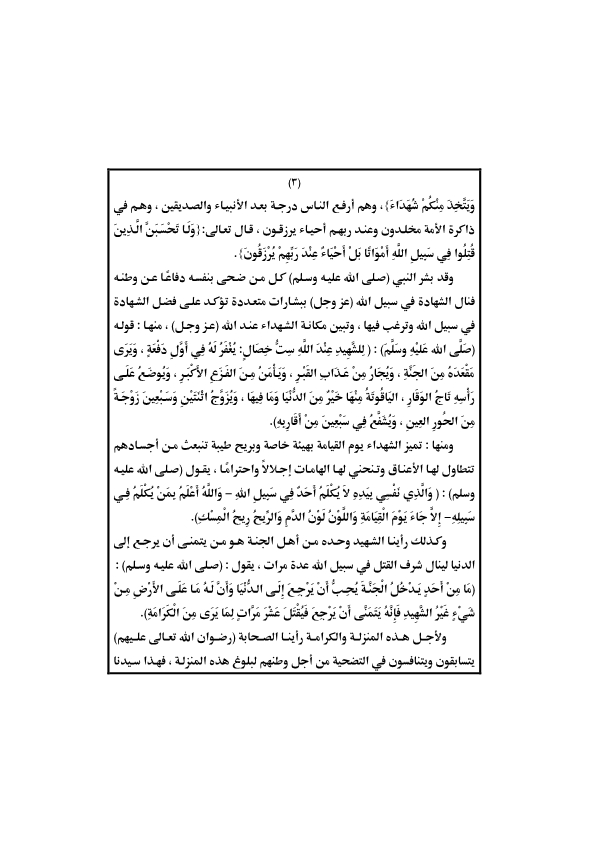 (٣)
وَيَتَّخِذَ مِنْكُمْ شُهَدَاءَ}، وهم أرفع الناس درجة بعد الأنبياء والصديقين ، وهم في
ذاكرة الأمة مخلدون وعند ربهم أحياء يرزقون ، قال تعالى:{وَلَا تَحْسَبَنَّ الَّذِينَ
قُتِلُوا فِي سَبِيلِ اللَّهِ أَمْوَاتًا بَلْ أَحْيَاءٌ عِنْدَ رَبِّهِمْ يُرْزَقُونَ}.
وقد بشر النبي (صلى الله عليه وسلم) كل من ضحى بنفسه دفاعًا عن وطنه
فنال الشهادة في سبيل الله (عز وجل) ببشارات متعددة تؤكد على فضل الشهادة
في سبيل الله وترغب فيها ، وتبين مكانة الشهداء عند الله (عز وجل) ، منها : قوله
(صَلَّى الله عَلَيْهِ وَسلَّمَ) : ( لِلشَّهِيدِ عِنْدَ اللَّهِ سِتُّ خِصَالٍ: يُغْفَرُ لَهُ فِي أَوَّلِ دَفْعَةٍ ، وَيَرَى
مَقْعَدَهُ مِنَ الجَنَّةِ ، وَيُجَارُ مِنْ عَذَابِ القَبْرِ ، وَيَأْمَنُ مِنَ الفَزَعِ الأَكْبَرِ ، وَيُوضَعُ عَلَى
رَأْسِهِ تَاجُ الوَقَارِ ، اليَاقُوتَةُ مِنْهَا خَيْرٌ مِنَ الدُّنْيَا وَمَا فِيهَا ، وَيُزَوَّجُ اثْنَتَيْنِ وَسَبْعِينَ زَوْجَةً
مِنَ الحُورِ العِينِ ، وَيُشَفَّعُ فِي سَبْعِينَ مِنْ أَقَارِبِهِ).
ومنها : تميز الشهداء يوم القيامة بهيئة خاصة وبريح طيبة تنبعث من أجسادهم
تتطاول لها الأعناق وتنحني لها الهامات إجلالاً واحترامًا ، يقول (صلى الله عليه
وسلم) : ( وَالَّذِي نَفْسِي بِيَدِهِ لاَ يُكْلَمُ أَحَدٌ فِي سَبِيلِ اللهِ – وَاللَّهُ أَعْلَمُ بِمَنْ يُكْلَمُ فِي
سَبِيلِهِ– إِلاَّ جَاءَ يَوْمَ الْقِيَامَةِ وَاللَّوْنُ لَوْنُ الدَّمِ وَالرِّيحُ رِيحُ الْمِسْكِ).
وكذلك رأينا الشهيد وحده من أهل الجنة هو من يتمنى أن يرجع إلى
الدنيا لينال شرف القتل في سبيل الله عدة مرات ، يقول : (صلى الله عليه وسلم) :
(مَا مِنْ أَحَدٍ يَدْخُلُ الْجَنَّةَ يُحِبُّ أَنْ يَرْجِعَ إِلَى الدُّنْيَا وَأَنَّ لَهُ مَا عَلَى الأَرْضِ مِنْ
شَيْءٍ غَيْرُ الشَّهِيدِ فَإِنَّهُ يَتَمَنَّى أَنْ يَرْجِعَ فَيُقْتَلَ عَشْرَ مَرَّاتٍ لِمَا يَرَى مِنَ الْكَرَامَةِ).
ولأجل هذه المنزلة والكرامة رأينا الصحابة (رضوان الله تعالى عليهم)
يتسابقون ويتنافسون في التضحية من أجل وطنهم لبلوغ هذه المنزلة ، فهذا سيدنا